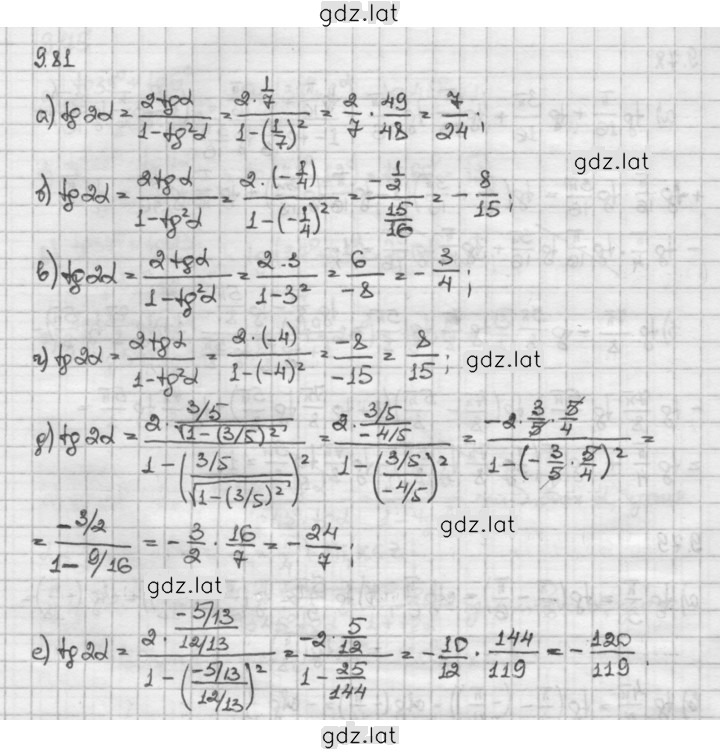 gdz.lat
9.81
а) tg2α = 2tgα/(1-tg²α) = (2·1/7)/(1-(1/7)²) = 2/7 · 49/48 = 7/24;
gdz.lat
б) tg2α = 2tgα/(1-tg²α) = (2·(-1/4))/(1-(-1/4)²) = (-1/2)/(15/16) = -8/15;
в) tg2α = 2tgα/(1-tg²α) = (2·3)/(1-3²) = 6/-8 = -3/4;
г) tg2α = 2tgα/(1-tg²α) = (2·(-4))/(1-(-4)²) = -8/-15 = 8/15;
gdz.lat
д) tg2α = (2·(3/5)/√(1-(3/5)²))/(1-((3/5)/√(1-(3/5)²))²) = (2·(3/5)/(-4/5))/(1-((3/5)/(-4/5))²) = (-2·3/5·5/4)/(1-(-3/5·5/4)²) =
= (-3/2)/(1-9/16) = -3/2 · 16/7 = -24/7;
gdz.lat
gdz.lat
е) tg2α = (2·(-5/13)/(12/13))/(1-((-5/13)/(12/13))²) = (-2·5/12)/(1-25/144) = -10/12 · 144/119 = -120/119.
gdz.lat